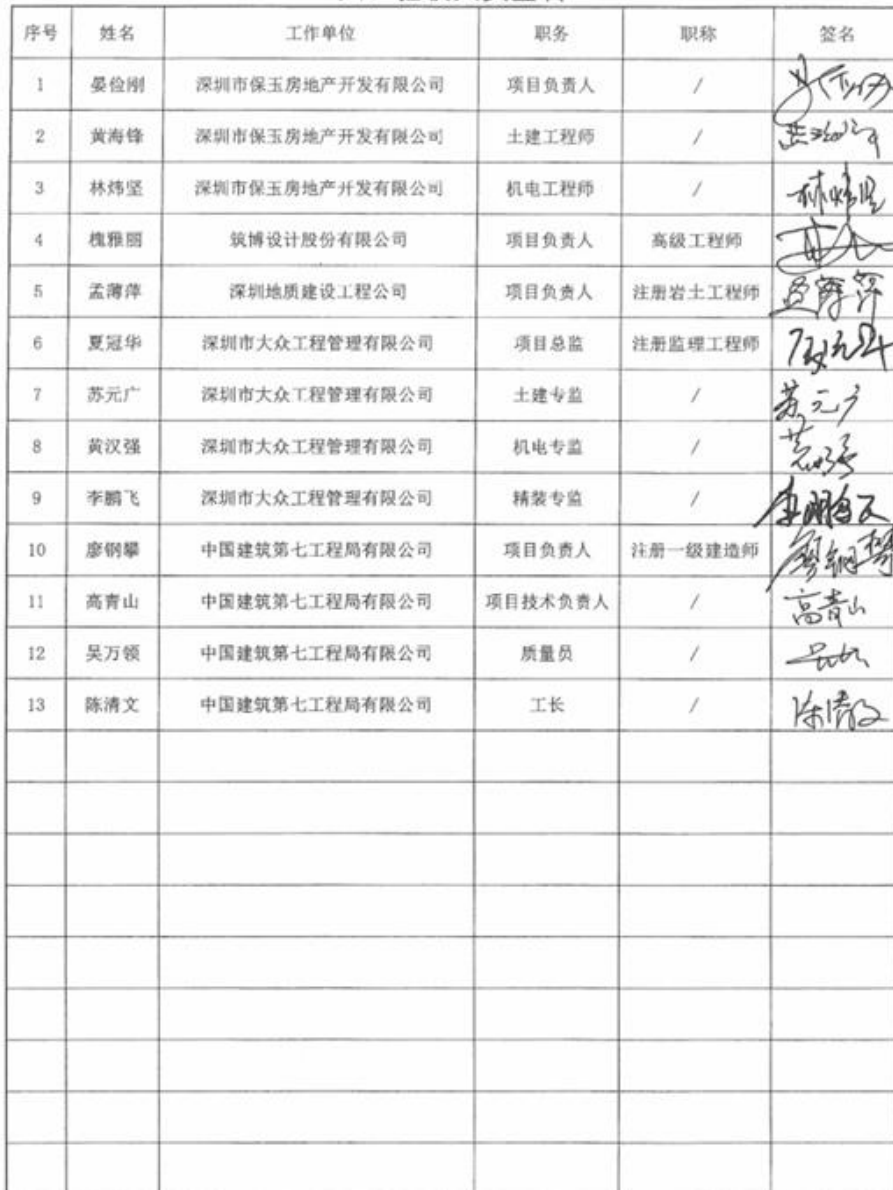 序号 姓名 工作单位 职务 职称 签名
1 晏俭刚 深圳市保玉房地产开发有限公司 项目负责人 /
2 黄海锋 深圳市保玉房地产开发有限公司 土建工程师 /
3 林炜坚 深圳市保玉房地产开发有限公司 机电工程师 / 林炜坚
4 槐雅丽 筑博设计股份有限公司 项目负责人 高级工程师
5 孟薄萍 深圳地质建设工程公司 项目负责人 注册岩土工程师 孟薄萍
6 夏冠华 深圳市大众工程管理有限公司 项目总监 注册监理工程师
7 苏元广 深圳市大众工程管理有限公司 土建专监 / 苏元广
8 黄汉强 深圳市大众工程管理有限公司 机电专监 /
9 李鹏飞 深圳市大众工程管理有限公司 精装专监 / 李鹏飞
10 廖钢攀 中国建筑第七工程局有限公司 项目负责人 注册一级建造师 廖钢攀
11 高青山 中国建筑第七工程局有限公司 项目技术负责人 / 高青山
12 吴万领 中国建筑第七工程局有限公司 质量员 /
13 陈清文 中国建筑第七工程局有限公司 工长 / 陈清文